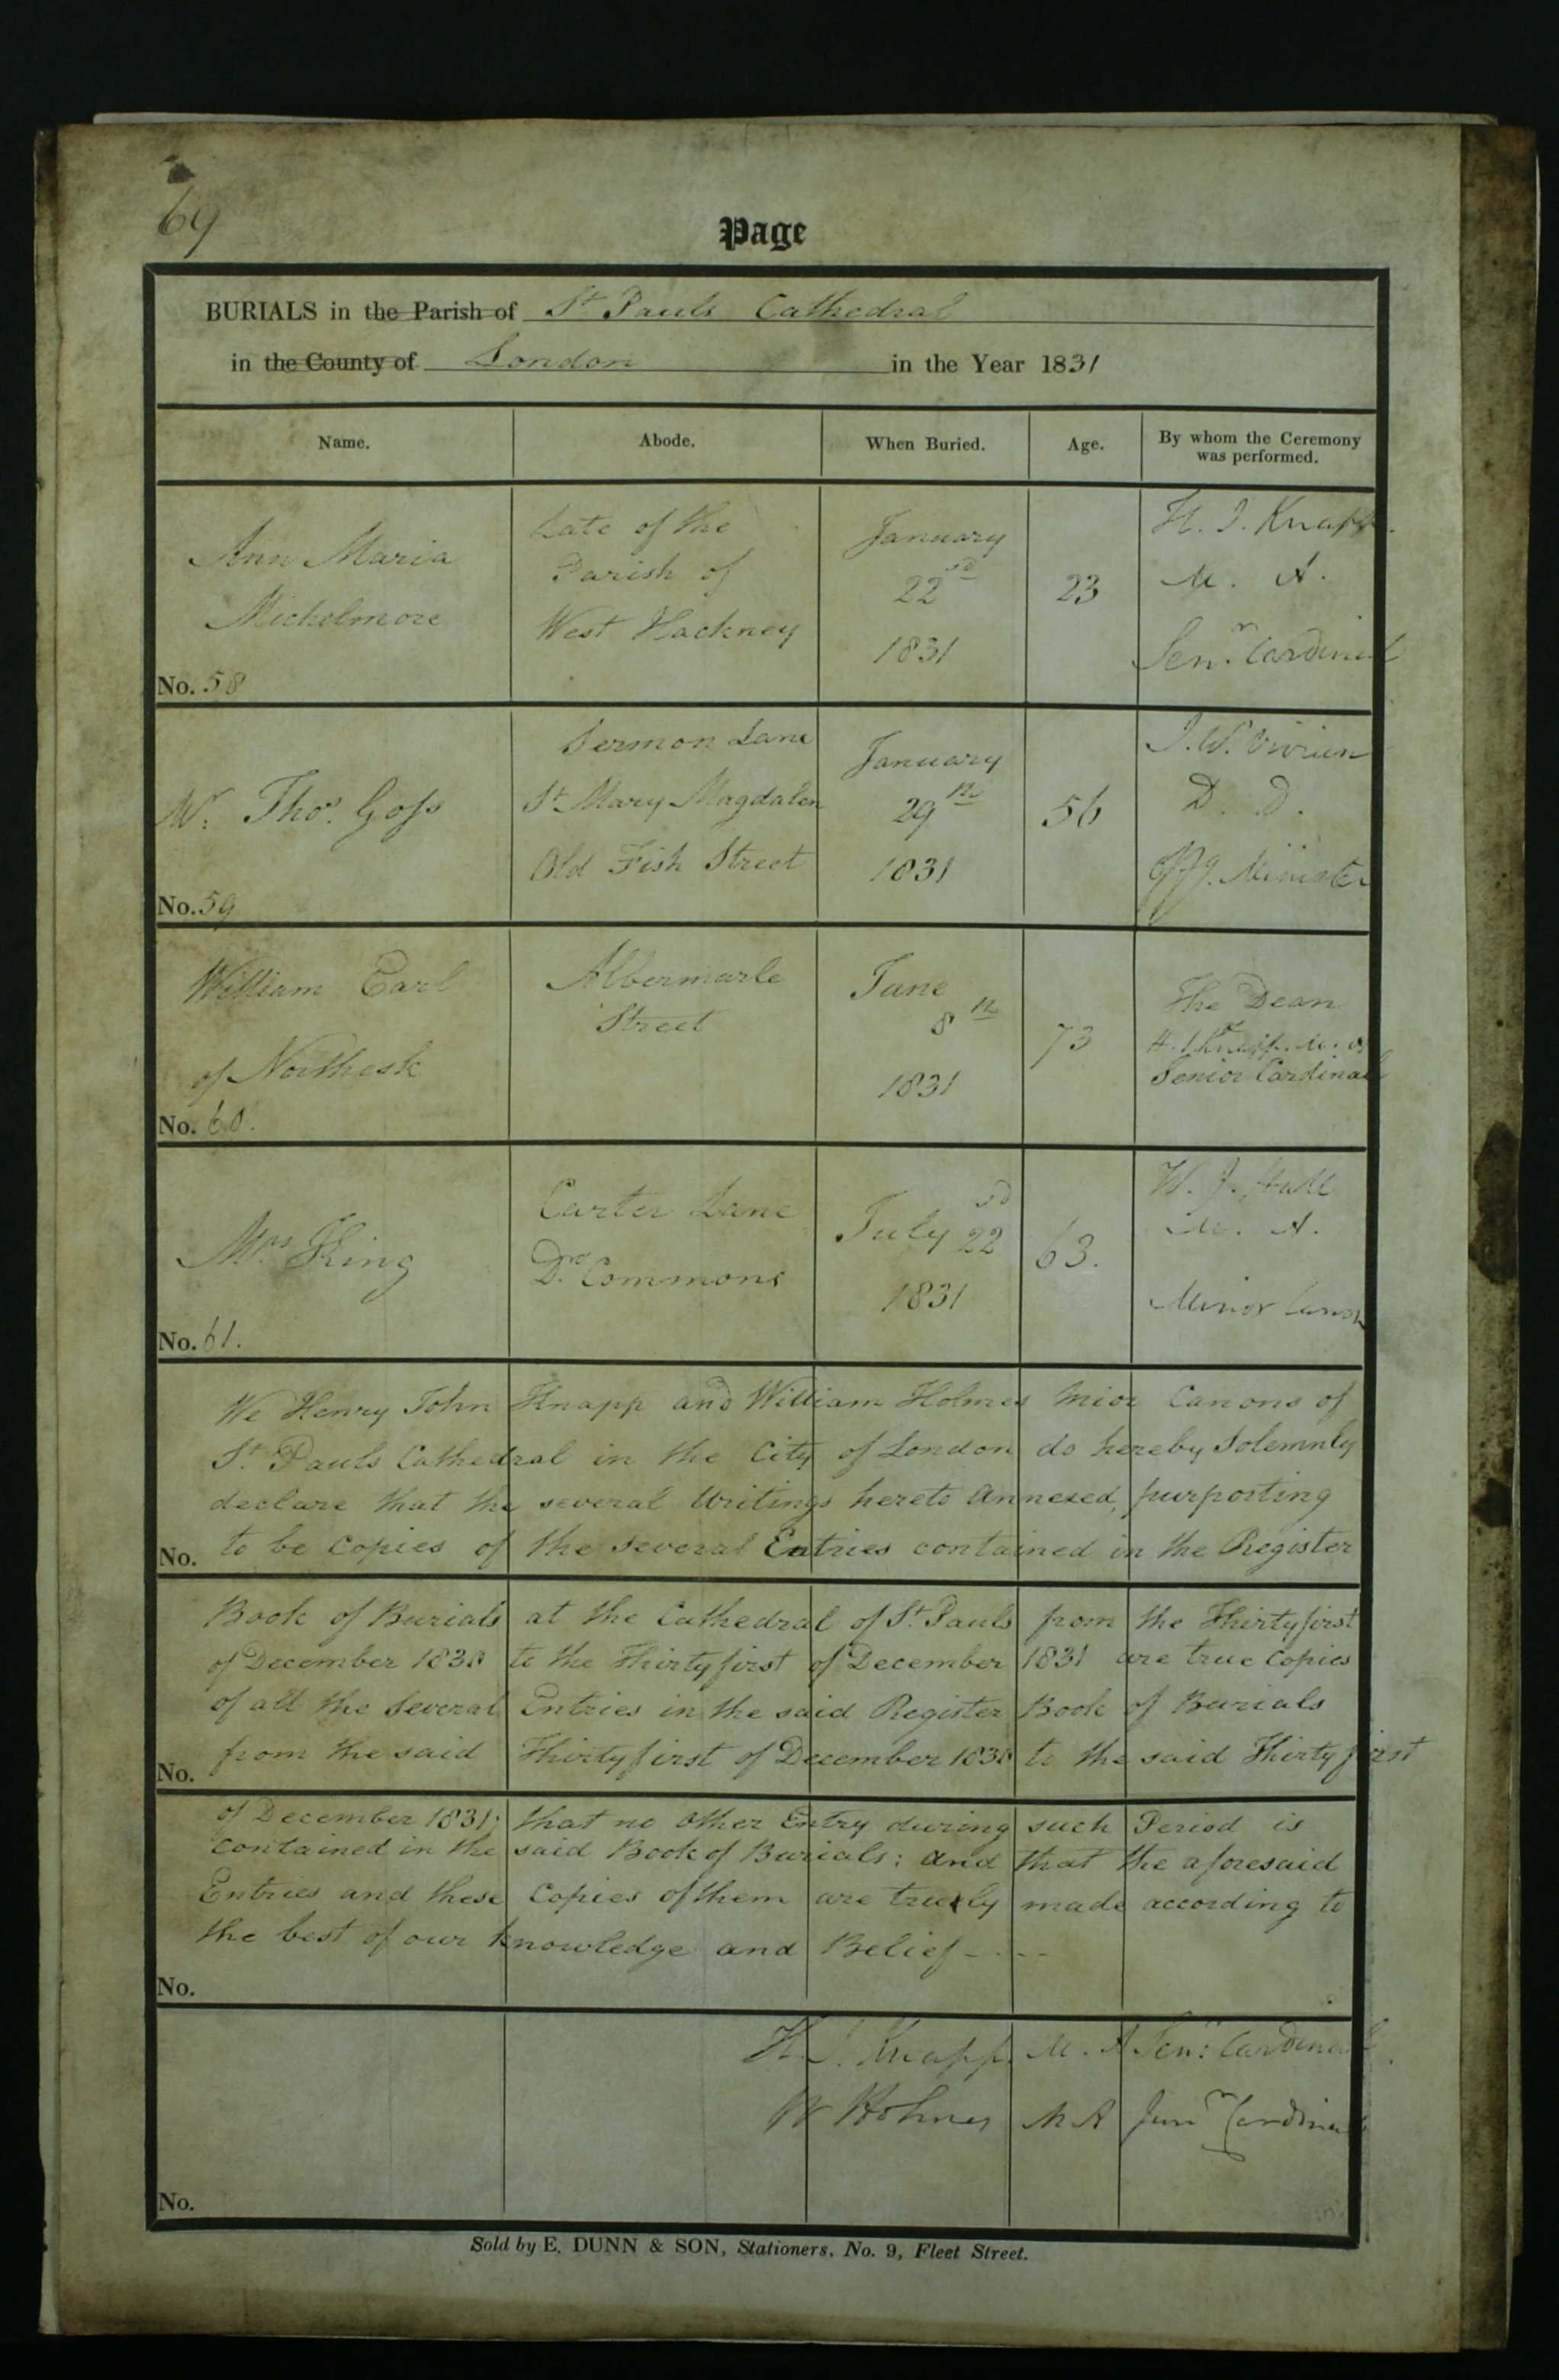 69
Page
BURIALS in the Parish of St Pauls Cathedral
in the County of London in the Year 1831
Name. Abode. When Buried. Age. By whom the Ceremony was performed.
Ann Maria
Michelmore
No. 58
Late of the
Parish of
West Hackney
January
22nd
1831
23
H. J. Knapp.
M. A.
Senr. Cardinal
Mr. Thos. Goss
No. 59
Sermon Lane
St Mary Magdalen
Old Fish Street
January
29th
1831
56
J. W. Vivian
D. D.
Offg. Minister
William Earl
of Northesk
No. 60.
Albermarle
Street
June
8th
1831
73
The Dean
H. J. Knapp. M. A
Senior Cardinal
Mrs King
No. 61.
Carter Lane
Drs Commons
July 22nd
1831
63.
W. J. Hall
M. A.
Minor Canon
We Henry John Knapp and William Holmes Mior Canons of
St. Pauls Cathedral in the City of London do hereby Solemnly
declare that the several Writings hereto Annexed, purporting
No. to be Copies of the several Entries contained in the Register
Book of Burials at the Cathedral of St. Pauls from the Thirtyfirst
of December 1830 to the Thirtyfirst of December 1831 are true Copies
of all the Several Entries in the said Register Book of Burials
No. from the said Thirtyfirst of December 1830 to the said Thirtyfirst
of December 1831; that no Other Entry during such Period is
contained in the said Book of Burials: and that the aforesaid
Entries and these Copies of them are truely made according to
the best of our knowledge and Belief ----
No.
H. J. Knapp. M. A Senr: Cardinal.
W Holmes M A Junr Cardinal
No.
Sold by E. DUNN & SON, Stationers, No. 9, Fleet Street.